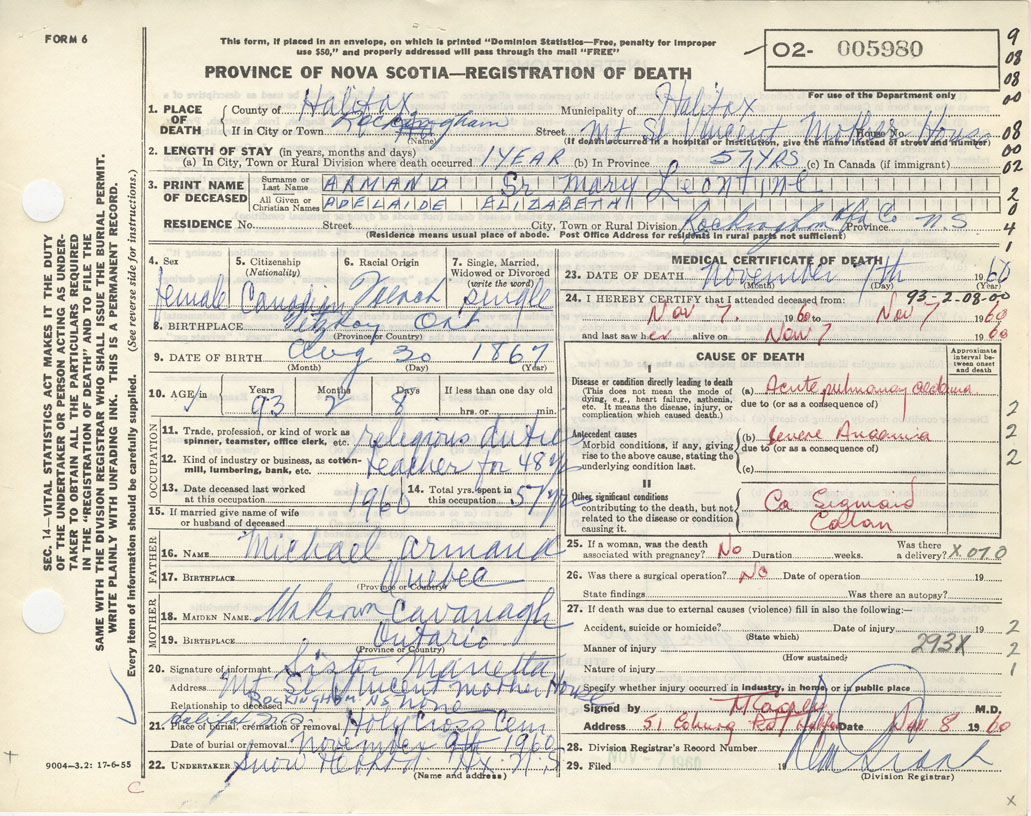 FORM 6
This form, if placed in an envelope, on which is printed "Dominion Statistics—Free, penalty for improper
use $50," and properly addressed will pass through the mail "FREE"
PROVINCE OF NOVA SCOTIA—REGISTRATION OF DEATH
O2- 005980
For use of the Department only
9
08
08
00
08
00
02
2
0
4
1
SEC. 14—VITAL STATISTICS ACT MAKES IT THE DUTY
OF THE UNDERTAKER OR PERSON ACTING AS UNDER-
TAKER TO OBTAIN ALL THE PARTICULARS REQUIRED
IN THE "REGISTRATION OF DEATH" AND TO FILE THE
SAME WITH THE DIVISION REGISTRAR WHO SHALL ISSUE THE BURIAL PERMIT.
WRITE PLAINLY WITH UNFADING INK. THIS IS A PERMANENT RECORD.
Every item of information should be carefully supplied. (See reverse side for instructions.)
1. PLACE OF DEATH
County of Halifax Municipality of Halifax
If in City or Town Rockingham Street Mt St Vincent Mother House House No.
(Name) (If death occurred in a hospital or institution, give the name instead of street and number)
2. LENGTH OF STAY (in years, months and days)
(a) In City, Town or Rural Division where death occurred 1 YEAR (b) In Province 57 YRS (c) In Canada (if immigrant)
3. PRINT NAME OF DECEASED
Surname or Last Name ARMAND Sr Mary Leontine
All Given or Christian Names ADELAIDE ELIZABETH
RESIDENCE No. Street City, Town or Rural Division Rockingham Hfx Co Province N.S
(Residence means usual place of abode. Post Office Address for residents in rural parts not sufficient)
4. Sex female
5. Citizenship (Nationality) Canadian
6. Racial Origin French
7. Single, Married, Widowed or Divorced (write the word) single
8. BIRTHPLACE Fitzroy Ont
(Province or Country)
9. DATE OF BIRTH Aug 30 1867
(Month) (Day) (Year)
10. AGE in Years 93 Months 2 Days 8 If less than one day old hrs. or min.
OCCUPATION
11. Trade, profession or kind of work as spinner, teamster, office clerk, etc. religious duties
12. Kind of industry or business, as cotton-mill, lumbering, bank, etc. teacher for 48 yrs
13. Date deceased last worked at this occupation 1960 14. Total yrs. spent in this occupation 57 yrs
15. If married give name of wife or husband of deceased
FATHER
16. NAME Michael Armand
17. BIRTHPLACE Quebec
(Province or Country)
MOTHER
18. MAIDEN NAME Unknown Cavanagh
19. BIRTHPLACE Ontario
(Province or Country)
20. Signature of informant Sister Marietta
Address Mt St Vincent Mother House
ROCKINGHAM NS
Relationship to deceased none
Halifax N.S.
21. Place of burial, cremation or removal Holy Cross Cem
Date of burial or removal November 9th 1960
22. UNDERTAKER Snow Hfx. N.S
(Name and address)
9004—3.2: 17-6-55
C
MEDICAL CERTIFICATE OF DEATH
23. DATE OF DEATH November 7th 1960
(Month) (Day) (Year)
93-2-08-00
24. I HEREBY CERTIFY that I attended deceased from:
Nov 7. 1960 to Nov 7 1960
and last saw her alive on Nov 7 1960
CAUSE OF DEATH
Approximate interval between onset and death
I
Disease or condition directly leading to death
(This does not mean the mode of dying, e.g., heart failure, asthenia, etc. It means the disease, injury, or complication which caused death.)
(a) Acute pulmonary oedema
due to (or as a consequence of)
Antecedent causes
Morbid conditions, if any, giving rise to the above cause, stating the underlying condition last.
(b) Severe Anaemia
due to (or as a consequence of)
(c)
II
Other significant conditions
contributing to the death, but not related to the disease or condition causing it.
Ca Sigmoid
Colon
2
2
2
25. If a woman, was the death associated with pregnancy? No Duration weeks. Was there a delivery? X070
26. Was there a surgical operation? No Date of operation 19
State findings Was there an autopsy?
27. If death was due to external causes (violence) fill in also the following:—
Accident, suicide or homicide? Date of injury 19 2
(State which)
Manner of injury 293X 2
(How sustained)
Nature of injury 1
Specify whether injury occurred in industry, in home, or in public place
Signed by M.D.
Address 51 Coburg Rd, Halifax Date Nov 8 1960
28. Division Registrar's Record Number
29. Filed NOV - 7 1960 19
(Division Registrar)
x